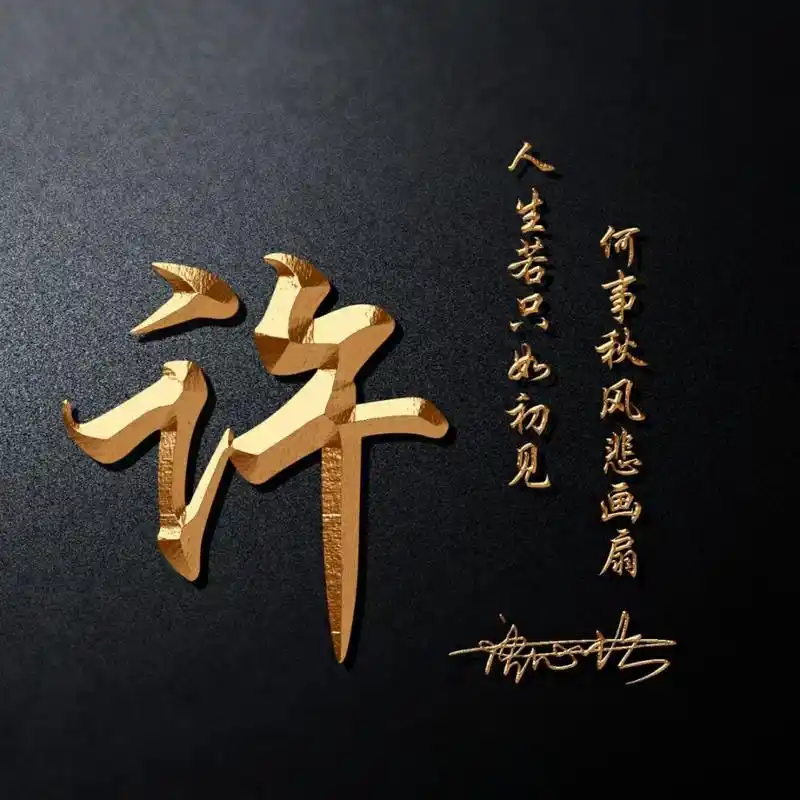 许
人生若只如初见
何事秋风悲画扇